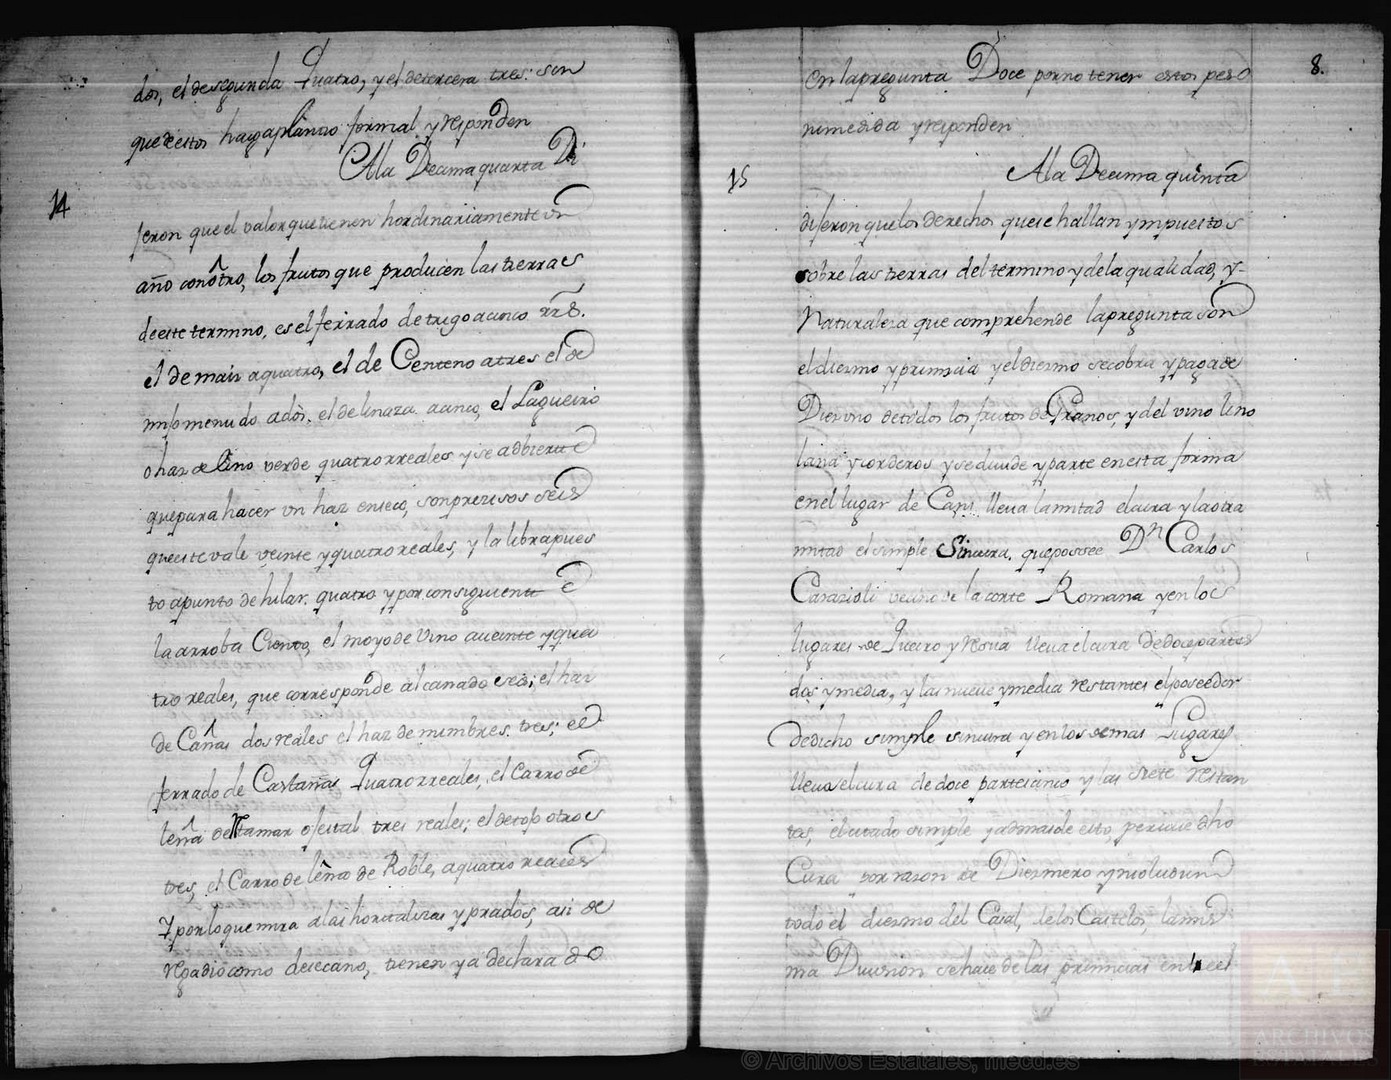 dos, el de segunda Quatro, y el de tercera tres: sin
que de estos haya plantio formal y responden
A la Decima quarta Di
14
jeron que el valor que tienen hordinariamente un
año con ôtro, los frutos que producen las tierras
de este termino, es el ferrado de trigo a cinco rrs.
el de maiz a quatro, el de Centeno a tres el de
mijo menudo a dos. el de linaza. a cinco, el
o haz de Lino verde quatro rreales y se adbierte
que para hacer un haz en seco, son precisos seis
que este vale veinte y quatro reales, y la libra pues
to a punto de hilar. quatro y por consiguiente
la arroba Ciento, el moyo de vino a veinte y qua
tro reales, que corresponde al canado seis; el haz
de Cañas dos reales el haz de mimbres. tres; el
ferrado de Castañas Quatro rreales, el Carro de
leña de Ramar o festal tres reales; el de tojo otros
tres, el Carro de leña de Roble, a quatro reales
Y por lo que mira a las hortalizas y prados, asi de
regadio como de secano, tienen ya declarado
8.
en la pregunta Doce por no tener estos peso
ni medida y responden
A la Decima quinta
15
dijeron que los derechos que se hallan ympuestos
sobre las tierras del termino y de la qualidad, y
Naturaleza que comprehende la pregunta son
el diezmo y primicia y el diezmo se cobra y paga de
Diez uno de todos los frutos de Granos, y del vino lino
lana y corderos y se divide y parte en esta forma
en el lugar de Cans lleva la mitad el cura y la otra
mitad el simple Sincura, que possee Dn Carlos
Carazioli vecino de la corte Romana y en los
lugares de Queiro y lleva el cura de doce partes
dos y media, y las nueve y media restantes el poseedor
de dicho simple sincura y en los demas Lugares
lleva el cura de doce partes cinco y las siete restan
tes, el citado simple y ademas de esto, percive dho
Cura por razon de Diezmero y nsolidun
todo el diezmo del Casal, de los Castelos, la mis
ma Division se hace de las primicias entre el
© Archivos Estatales, mecd.es
ARCHIVOS
ESTATALES